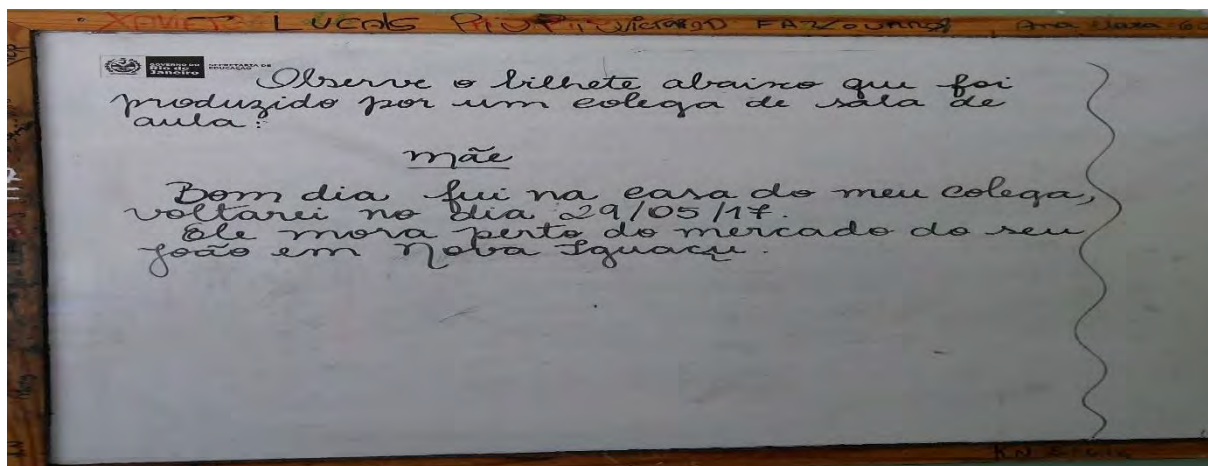 LUCAS
GOVERNO DO
Rio de
Janeiro
SECRETARIA DE
EDUCAÇÃO
Observe o bilhete abaixo que foi
produzido por um colega de sala de
aula:
mãe
Bom dia fui na casa do meu colega,
voltarei no dia 29/05/17.
Ele mora perto do mercado do seu
João em Nova Iguaçu.